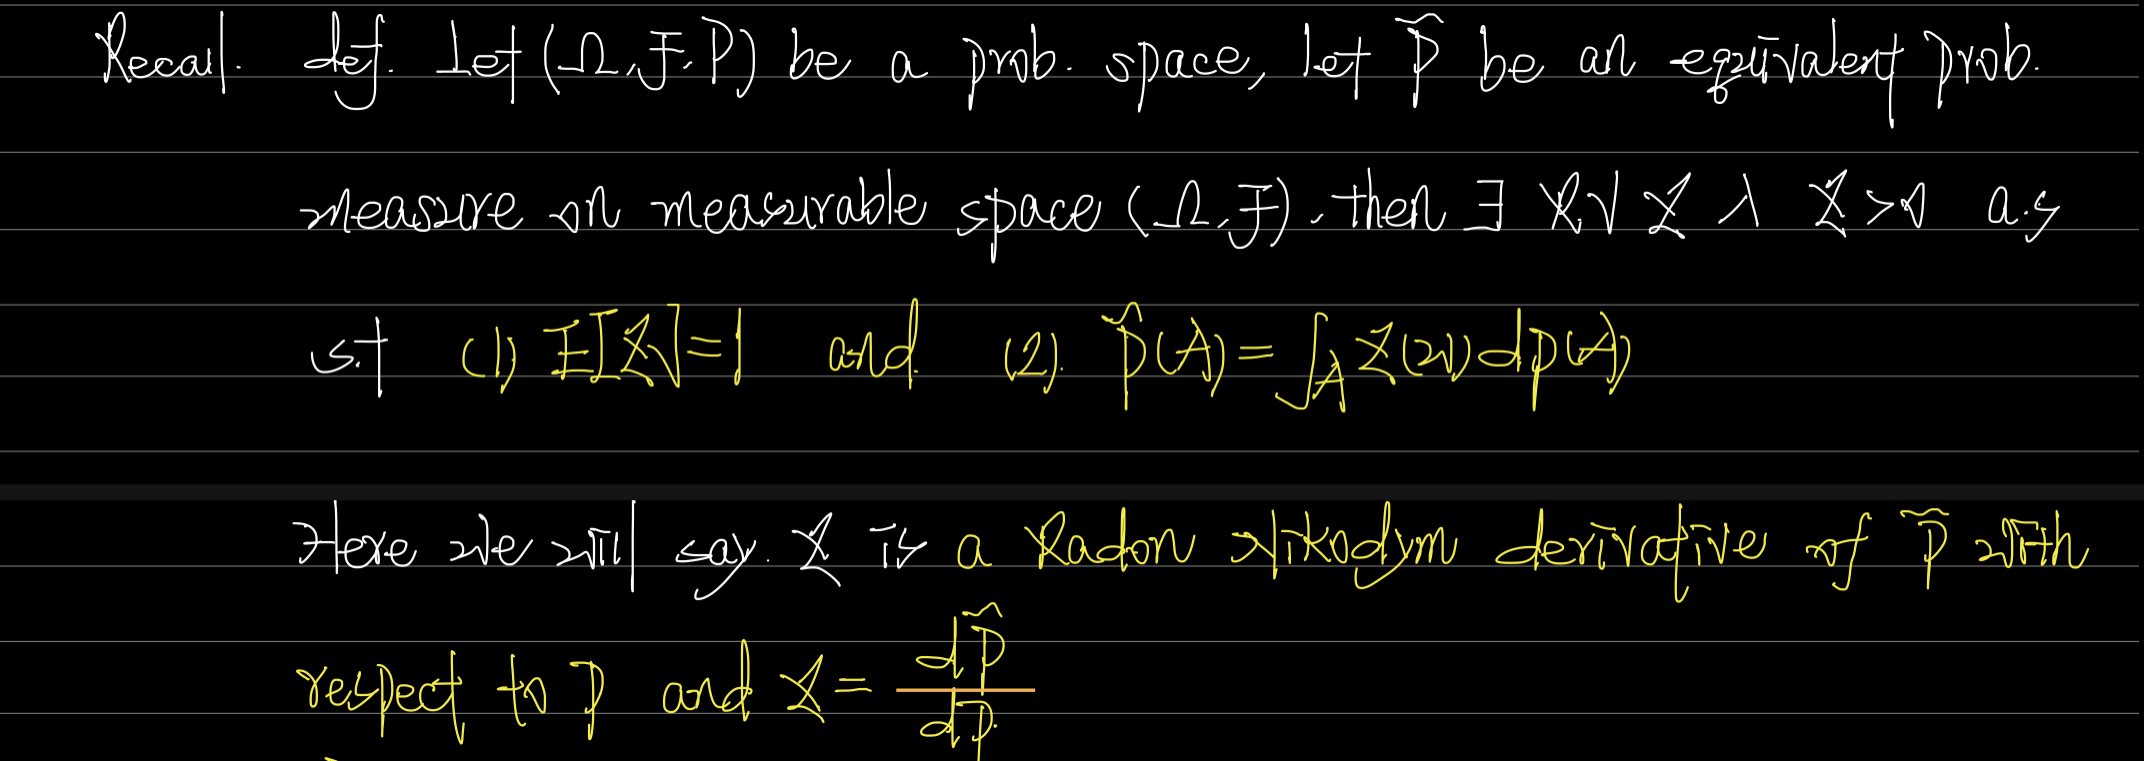 Recall. def. Let (Ω, F, P) be a prob. space, let P̃ be an equivalent prob.
measure on measurable space (Ω, F), then ∃ R.V Z ∧ Z > 0 a.s
s.t (1) E[Z] = 1 and (2). P̃(A) = ∫_A Z(w) dP(A)
Here we will say. Z is a Radon Nikodym derivative of P̃ with
respect to P and Z = dP̃/dP.